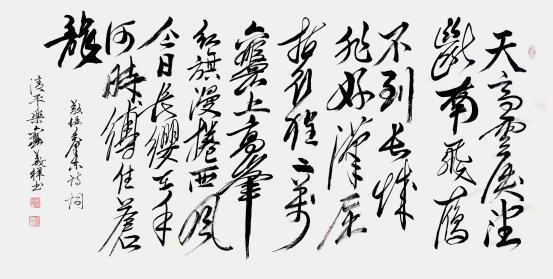 天高雲淡望
斷南飛雁
不到长城
非好漢屈
指行程二萬
六盤山上高峰
紅旗漫捲西風
今日長纓在手
何時縛住蒼
龍
敬毛東詩詞
清平樂義祥书